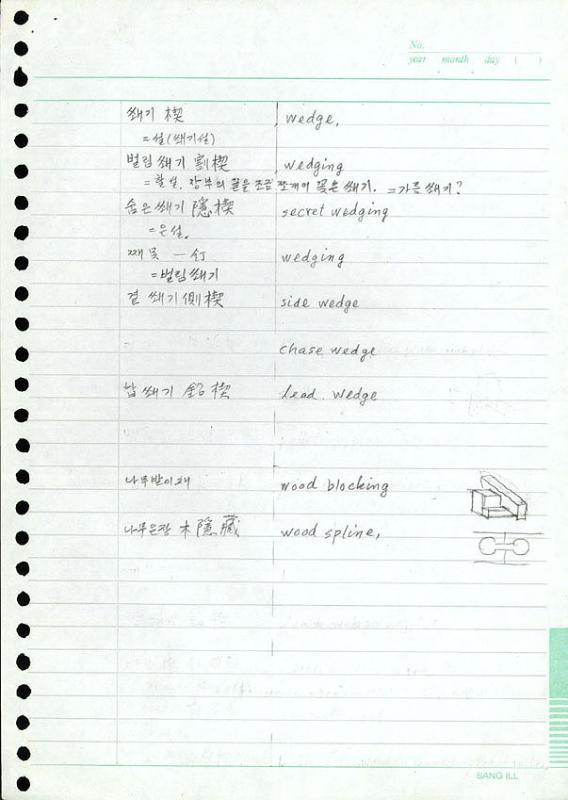 No.
year month day ( )
쐐기 楔 wedge,
=설(쐐기설)
벌림 쐐기 割楔 wedging
=할설, 장부의 끝을 조금 쪼개어 꽂은 쐐기. =가른 쐐기?
숨은 쐐기 隱楔 secret wedging
=은설.
째못 —釘 wedging
=벌림쐐기
곁 쐐기 側楔 side wedge
chase wedge
납 쐐기 鉛楔 lead wedge
나무받이재 wood blocking
나무은장 木隱藏 wood spline,
SANG ILL